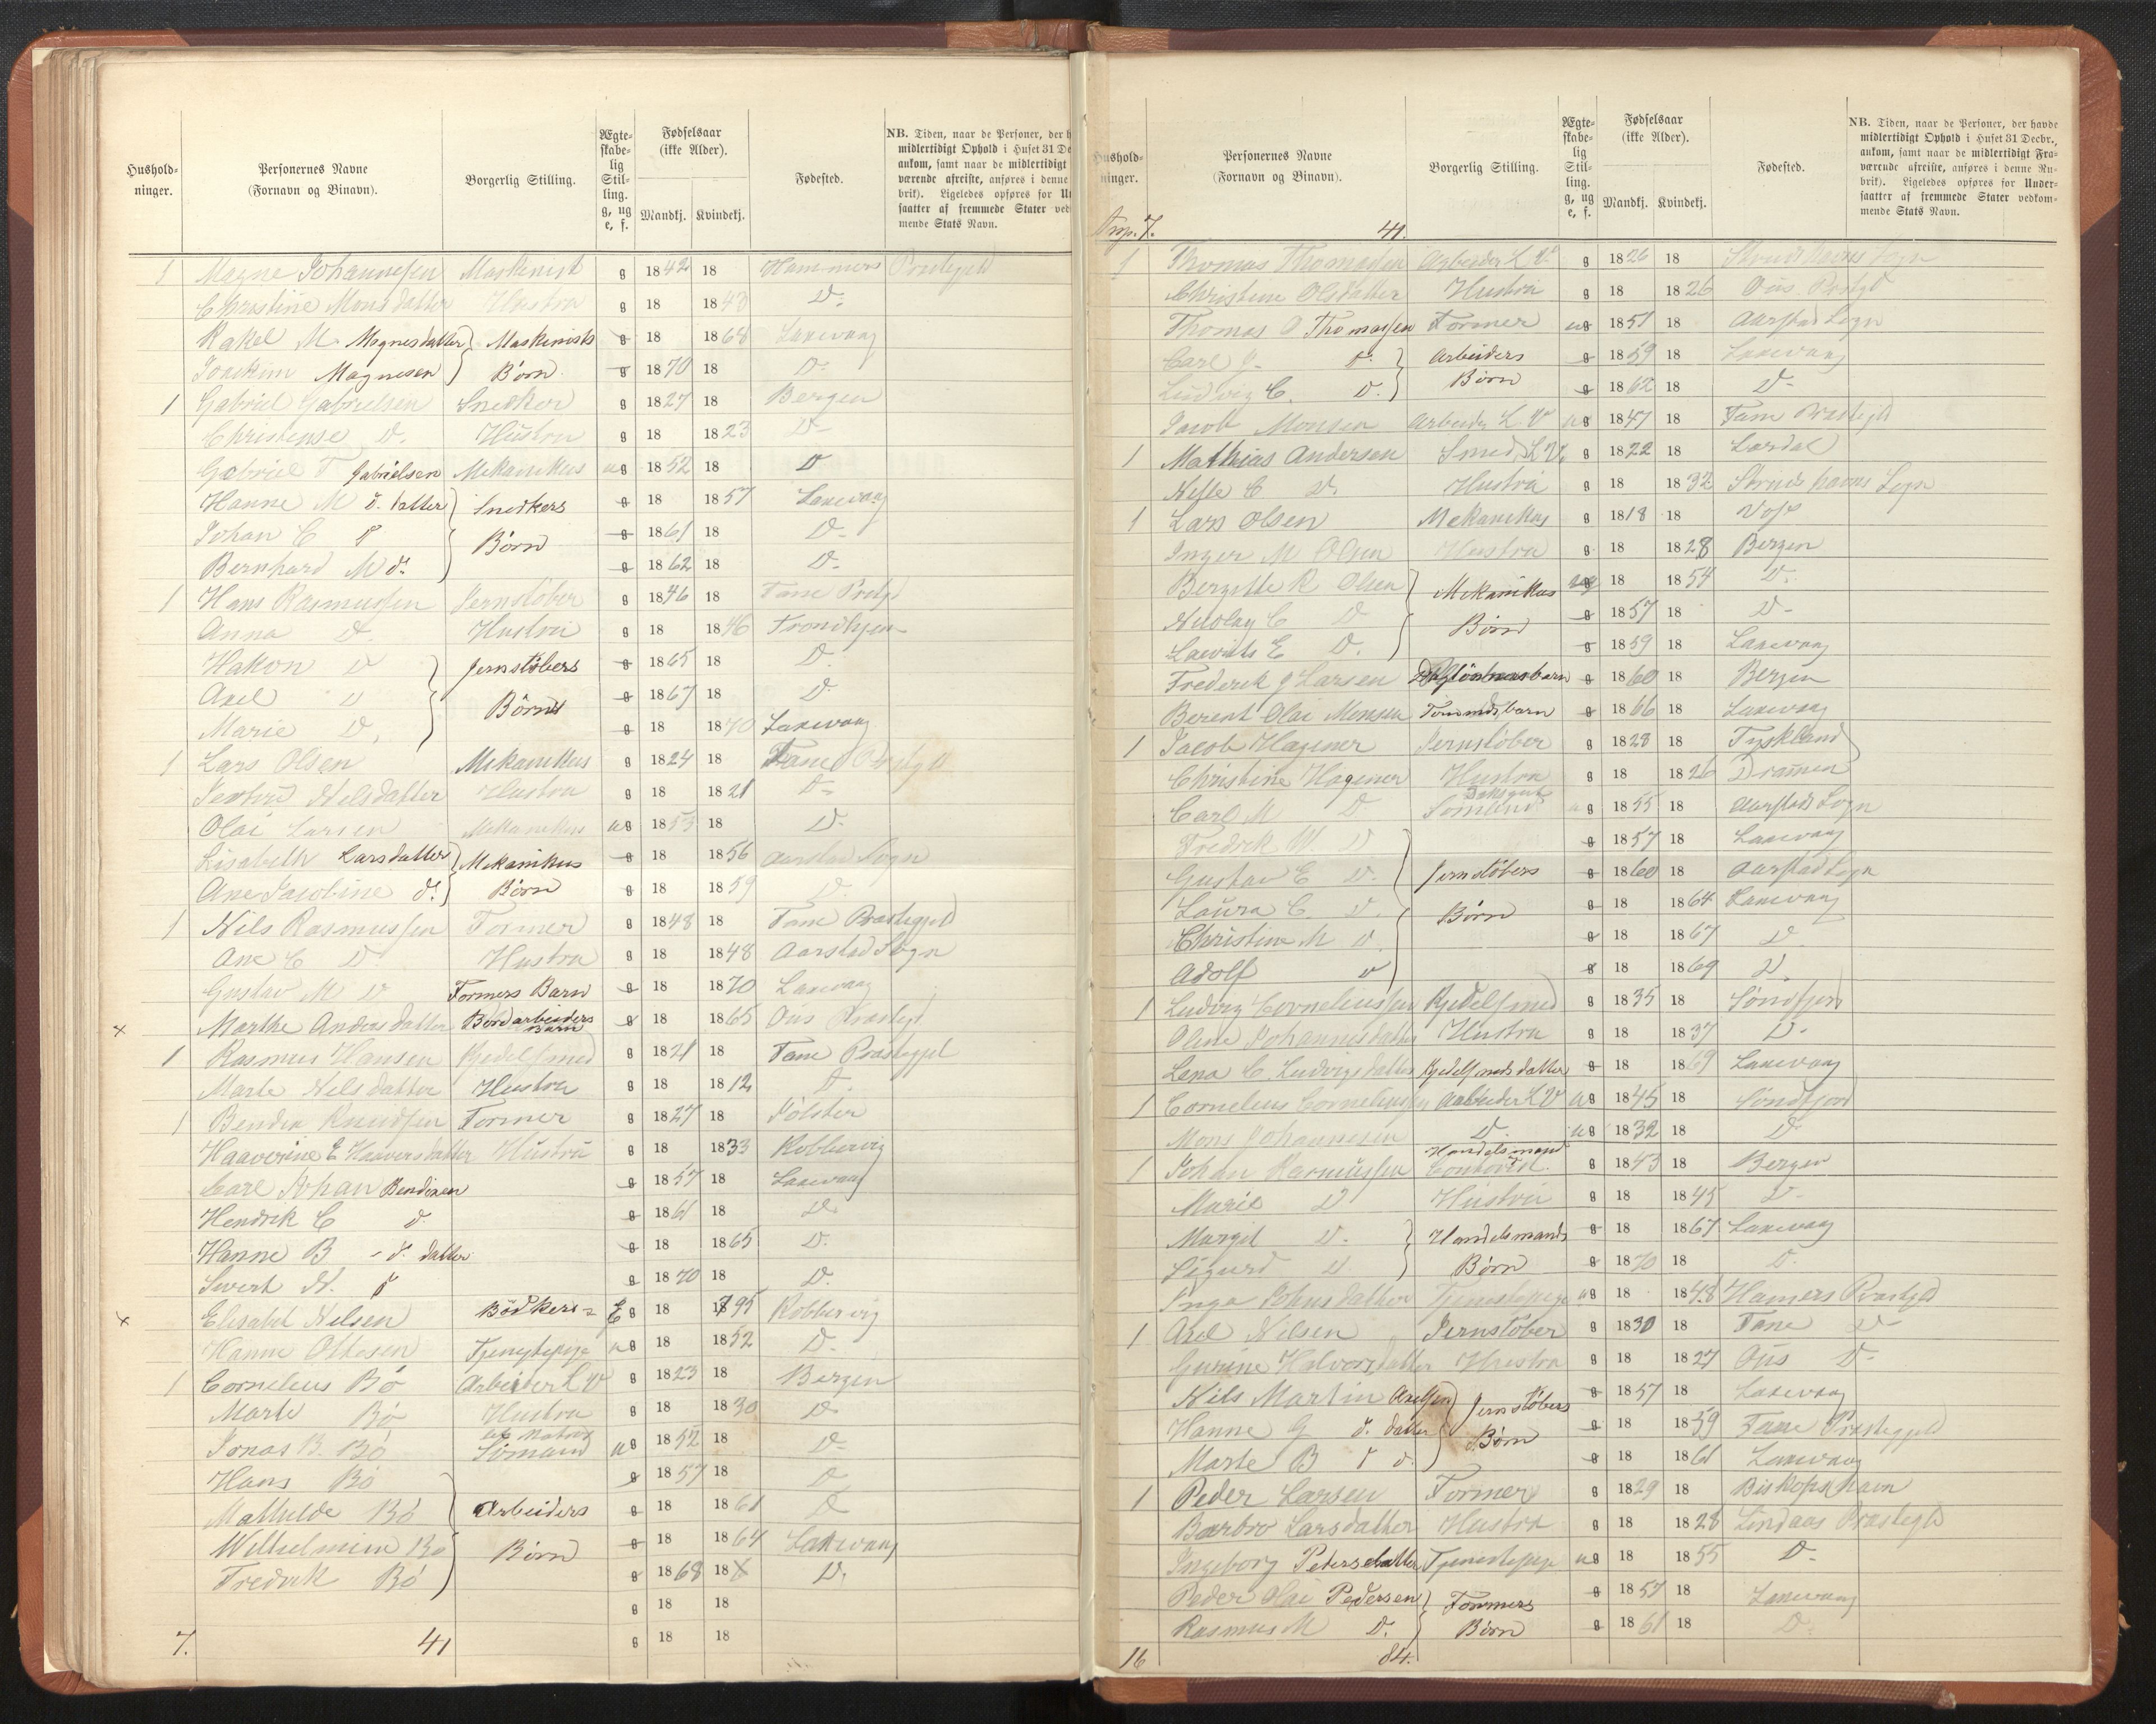 Hushold-
ninger.
Personernes Navne
(Fornavn og Binavn).
Borgerlig Stilling.
Ægte-
skabe-
lig
Stil-
ling.
g, ug
e, f.
Fødselsaar
(ikke Alder).
Mandkj. Kvindekj.
Fødested.
NB. Tiden, naar de Personer, der h
midlertidigt Ophold i Huset 31 De
ankom, samt naar de midlertidigt
værende afreiste, anføres i denne
brik). Ligeledes opføres for Un
saatter af fremmede Stater ved
mende Stats Navn.
1 Magne Johannesen Maskinist g 1842 18 Hammers Præstegjeld
Christine Monsdatter Hustru g 18 1843 D:
Rakel M. Magnesdatter } Maskinists g 18 1868 Laxevaag
Joackim Magnesen } Børn g 1870 18 D:
1 Gabriel Gabrielsen Snedker g 1827 18 Bergen
Christense D. Hustru g 18 1823 D-
Gabriel T Gabrielsen Mekanikus ug 1852 18 D
Hanne M d. datter } Snedkers g 18 1857 Laxevaag
Johan C d } Børn g 1861 18 D-
Bernhard M d. g 1862 18 D-
1 Hans Rasmussen Jernstøber g 1846 18 Fane Præstgd
Anna D. Hustru g 18 1846 Trondhjem
Hakon D } Jernstøbers g 1865 18 D.
Axel D } Børn g 1867 18 D.
Marie D. g 18 1870 Laxevaag
1 Lars Olsen Mekanikus g 1824 18 Fane Præstgd
Nelsdatter Hustru g 18 1821 D-
Olai Larsen Mekanikus ug 1853 18 D.
Lisabeth Larsdatter } Mekanikus g 18 1856 Aarstad Sogn
Ane Jacobine d. } Børn g 18 1859 D.
1 Nils Rasmussen Former g 1848 18 Fane Præstegjeld
Ane C D Hustru g 18 1848 Aarstad Sogn
Gustav M D Formers Barn g 18 1870 Laxevaag
x Marthe Andersdatter Bordarbeiders Barn g 18 1865 Ous Præstegd
1 Rasmus Hansen Kjedelsmed g 1821 18 Fane Præstegjel
Marte Nelsdatter Hustru g 18 1812 D.
1 Bendix Knudsen Former g 1827 18 Jølster
Haaverine E Haaversdatter Hustru g 18 1833 Kobbervig
Carl Johan Bendixen g 1857 18 Laxevaag
Hendrik C d g 1861 18 D.
Hanne B - d. datter g 18 1865 D.
Sivert N. d g 1870 18 D.
x Elisabet Nilsen Bødkers= E g 18 1795 Kobbervig
Hanne Ottesen Tjenestepige ug 18 1852 D.
1 Cornelius Bø Arbeider L V g 1823 18 Bergen
Marte Bø Hustru g 18 1830 D
Jonas B. Bø Sømand ug 1852 18 D-
Hans Bø g 1857 18 D
Mathilde Bø } Arbeiders g 18 1861 D
Wilhelmine Bø } Børn g 18 1864 Laxevaag
Fredrik Bø g 1868 18 D.
g 18 18
7. 41 g 18 18
Hushold-
ninger.
Personernes Navne
(Fornavn og Binavn).
Borgerlig Stilling.
Ægte-
skabe-
lig
Stil-
ling.
g, ug
e, f.
Fødselsaar
(ikke Alder).
Mandkj. Kvindekj.
Fødested.
NB. Tiden, naar de Personer, der havde
midlertidigt Ophold i Huset 31 Decbr.,
ankom, samt naar de midlertidigt Fra-
værende afreiste, anføres i denne Ru-
brik). Ligeledes opføres for Under-
saatter af fremmede Stater vedkom-
mende Stats Navn.
Trsp. 7. 41.
1 Thomas Thomassen Arbeider L V. g 1826 18 Sogn
Christine Olsdatter Hustru g 18 1826 Ous Præstgd
Thomas O Thomassen Former ug 1851 18 Aarstad Sogn
Carl J. D. } Arbeiders g 1859 18 Laxevaag
Ludvig C. D. } Børn g 1862 18 D-
Jacob Monsen Arbeider L V ug 1847 18 Fane Præstegd
1 Mathias Andersen Smed L V. g 1822 18 Lærdal
C D. Hustru g 18 1832 Sogn
1 Lars Olsen Mekanikus g 1818 18 Voss
Inger M Olsen Hustru g 18 1828 Bergen
Bergitte R Olsen } Mekanikus ug 18 1854 D.
Nikolay C D } Børn g 1857 18 D-
Lauritz E D. g 1859 18 Laxevaag
Frederik J Larsen g 1860 18 Bergen
Berent Olai Monsen Tømmdsbarn g 1866 18 Laxevaag
1 Jacob Hagener Jernstøber g 1828 18 Tyskland
Christine Hagener Hustru g 18 1826 Dramen
Carl M D Sømand ug 1855 18 Aarstads Sogn
Fredrik W. D g 1857 18 Laxevaag
Gustav E D. } Jernstøbers g 1860 18 Aarstad Sogn
Laura C. D. } Børn g 18 1864 Laxevaag
Christine M D. g 18 1867 D
Adolf D g 18 1869 D.
1 Ludvig Corneliussen Kjedelsmed g 1835 18 Søndfjord
Oline Johannesdatter Hustru g 18 1837 D-
Lena C. Ludvigsdatter Kjedelsmeds datter g 18 1869 Laxevaag
1 Cornelius Corneliussen Arbeider L V ug 1845 18 Søndfjord
Mons Johannesen D. ug 1832 18 D
1 Johan Rasmussen Handelsmand g 1843 18 Bergen
Marie D Hustru g 18 1845 D-
Margit D. } Handelsmands g 18 1867 Laxevaag
Sigurd D. } Børn g 1870 18 D.
Inga Johnsdatter Tjenestepige ug 18 1848 Hamers Præstgd
1 Axel Nilsen Jernstøber g 1830 18 Fane D-
Gurine Halvorsdatter Hustru g 18 1827 Ous D-
Nils Martin Axelsen } Jernstøbers g 1857 18 Laxevaag
Hanne G d. datter } Børn g 18 1859 Fane Præstegjeld
Marte B d d. g 18 1861 Laxevaag
1 Peder Larsen Former g 1829 18 Biskopshavn
Barbro Larsdatter Hustru g 18 1828 Lindaas Præstegd
Ingeborg Pedersdatter Tjenestepige ug 18 1855 D.
Peder Olai Pedersen } Formers g 1857 18 Laxevaag
Rasmus M D. } Børn g 1861 18 D.
16 84.